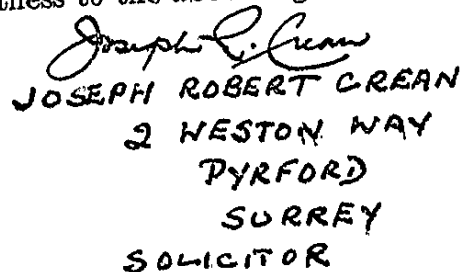 tness to the abo
Joseph R. Crean
JOSEPH ROBERT CREAN
2 WESTON WAY
PYRFORD
SURREY
SOLICITOR